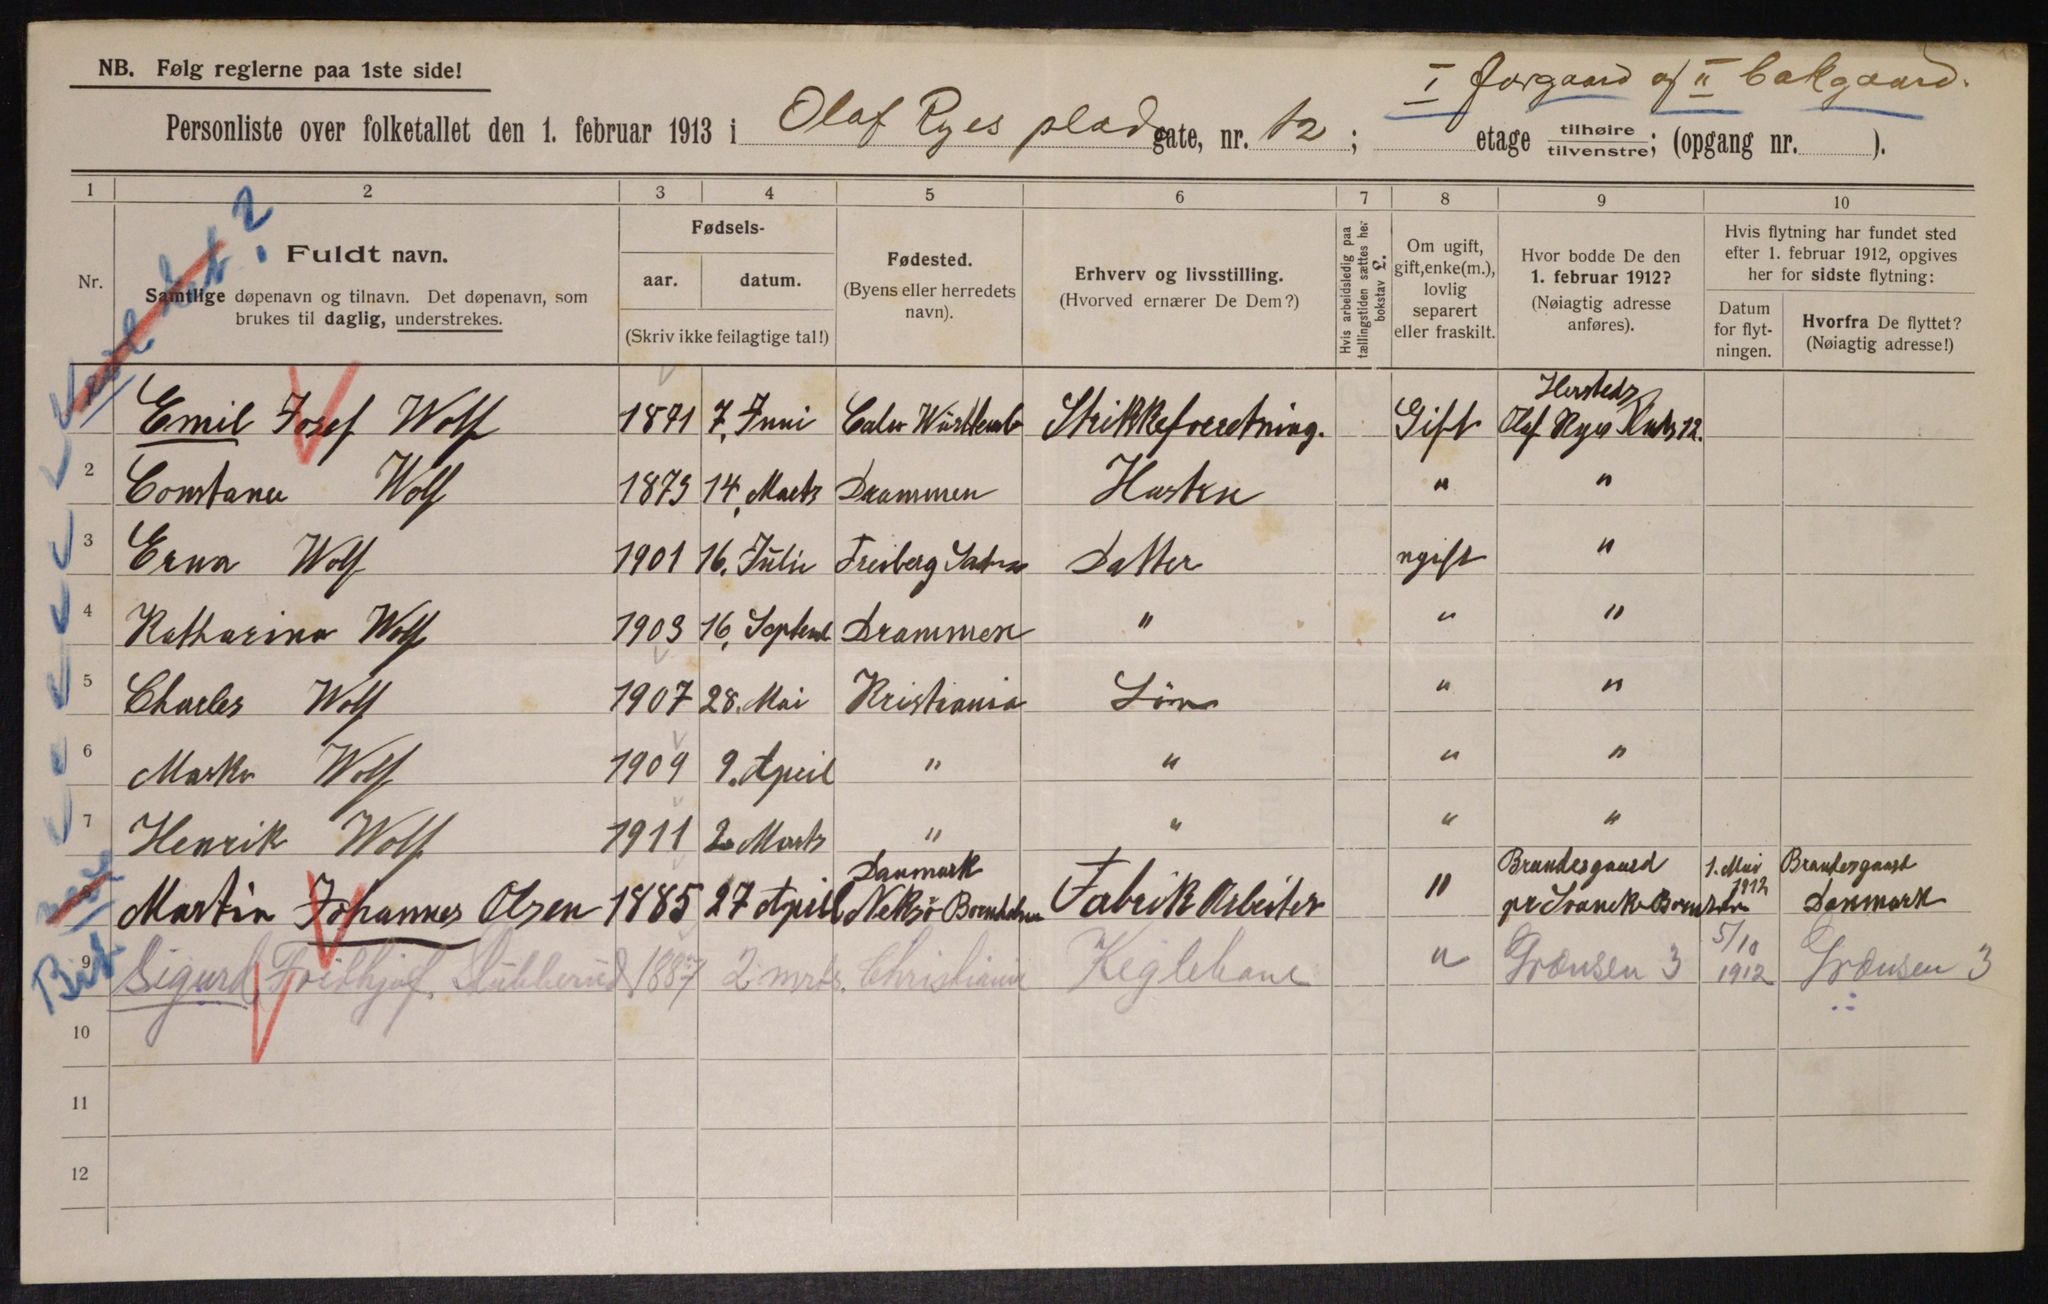 NB. Følg reglerne paa 1ste side!
I forgaard og II bakgaard.
Personliste over folketallet den 1. februar 1913 i Olaf Ryes plads gate, nr. 12; etage tilhøire/tilvenstre; (opgang nr. ).
1 2 3 4 5 6 7 8 9 10
Nr.
Fuldt navn.
Samtlige døpenavn og tilnavn. Det døpenavn, som
brukes til daglig, understrekes.
Fødsels-
aar. datum.
(Skriv ikke feilagtige tal!)
Fødested.
(Byens eller herredets
navn).
Erhverv og livsstilling.
(Hvorved ernærer De Dem?)
Hvis arbeidsledig paa
tællingstiden sættes her
bokstav L.
Om ugift,
gift, enke(m.),
lovlig
separert
eller fraskilt.
Hvor bodde De den
1. februar 1912?
(Nøiagtig adresse
anføres).
Hvis flytning har fundet sted
efter 1. februar 1912, opgives
her for sidste flytning:
Datum
for flyt-
ningen.
Hvorfra De flyttet?
(Nøiagtig adresse!)
Emil Josef Wolf 1871 7. Juni Calw Württemb Strikkeforretning. Gift Olaf Ryes Plads 12.
2 Constance Wolf 1873 14. Marts Drammen Hustru " "
3 Erna Wolf 1901 16. Juli Freiberg Datter ugift "
4 Katharina Wolf 1903 16. Septemb Drammen " " "
5 Charles Wolf 1907 28. Mai Kristiania Sön " "
6 Wolf 1909 9. April " " " "
7 Henrik Wolf 1911 2. Marts " " " "
8 Martin Johannes Olsen 1885 27 April Danmark Neksö Bornholm Fabrik Arbeiter " Brandesgaard pr Svaneke 1. Mai 1912 Brandesgaard Danmark
9 Sigurd Frithjof Stubberud 1887 2 mrts. Christiania Keglebane " Grændsen 3 5/10 1912 Grændsen 3
10
11
12